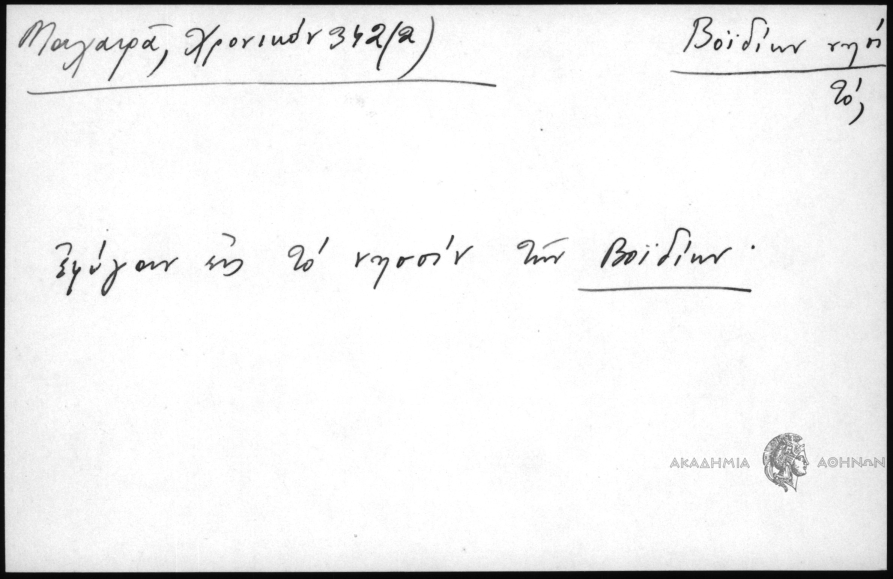 Μαχαιρᾶ, Χρονικόν 342(2)
Βοϊδίων νησί
τό,
ἐφύγαν εἰς τό νησσίν τῶν Βοϊδίων.
ΑΚΑΔΗΜΙΑ ΑΘΗΝΩΝ